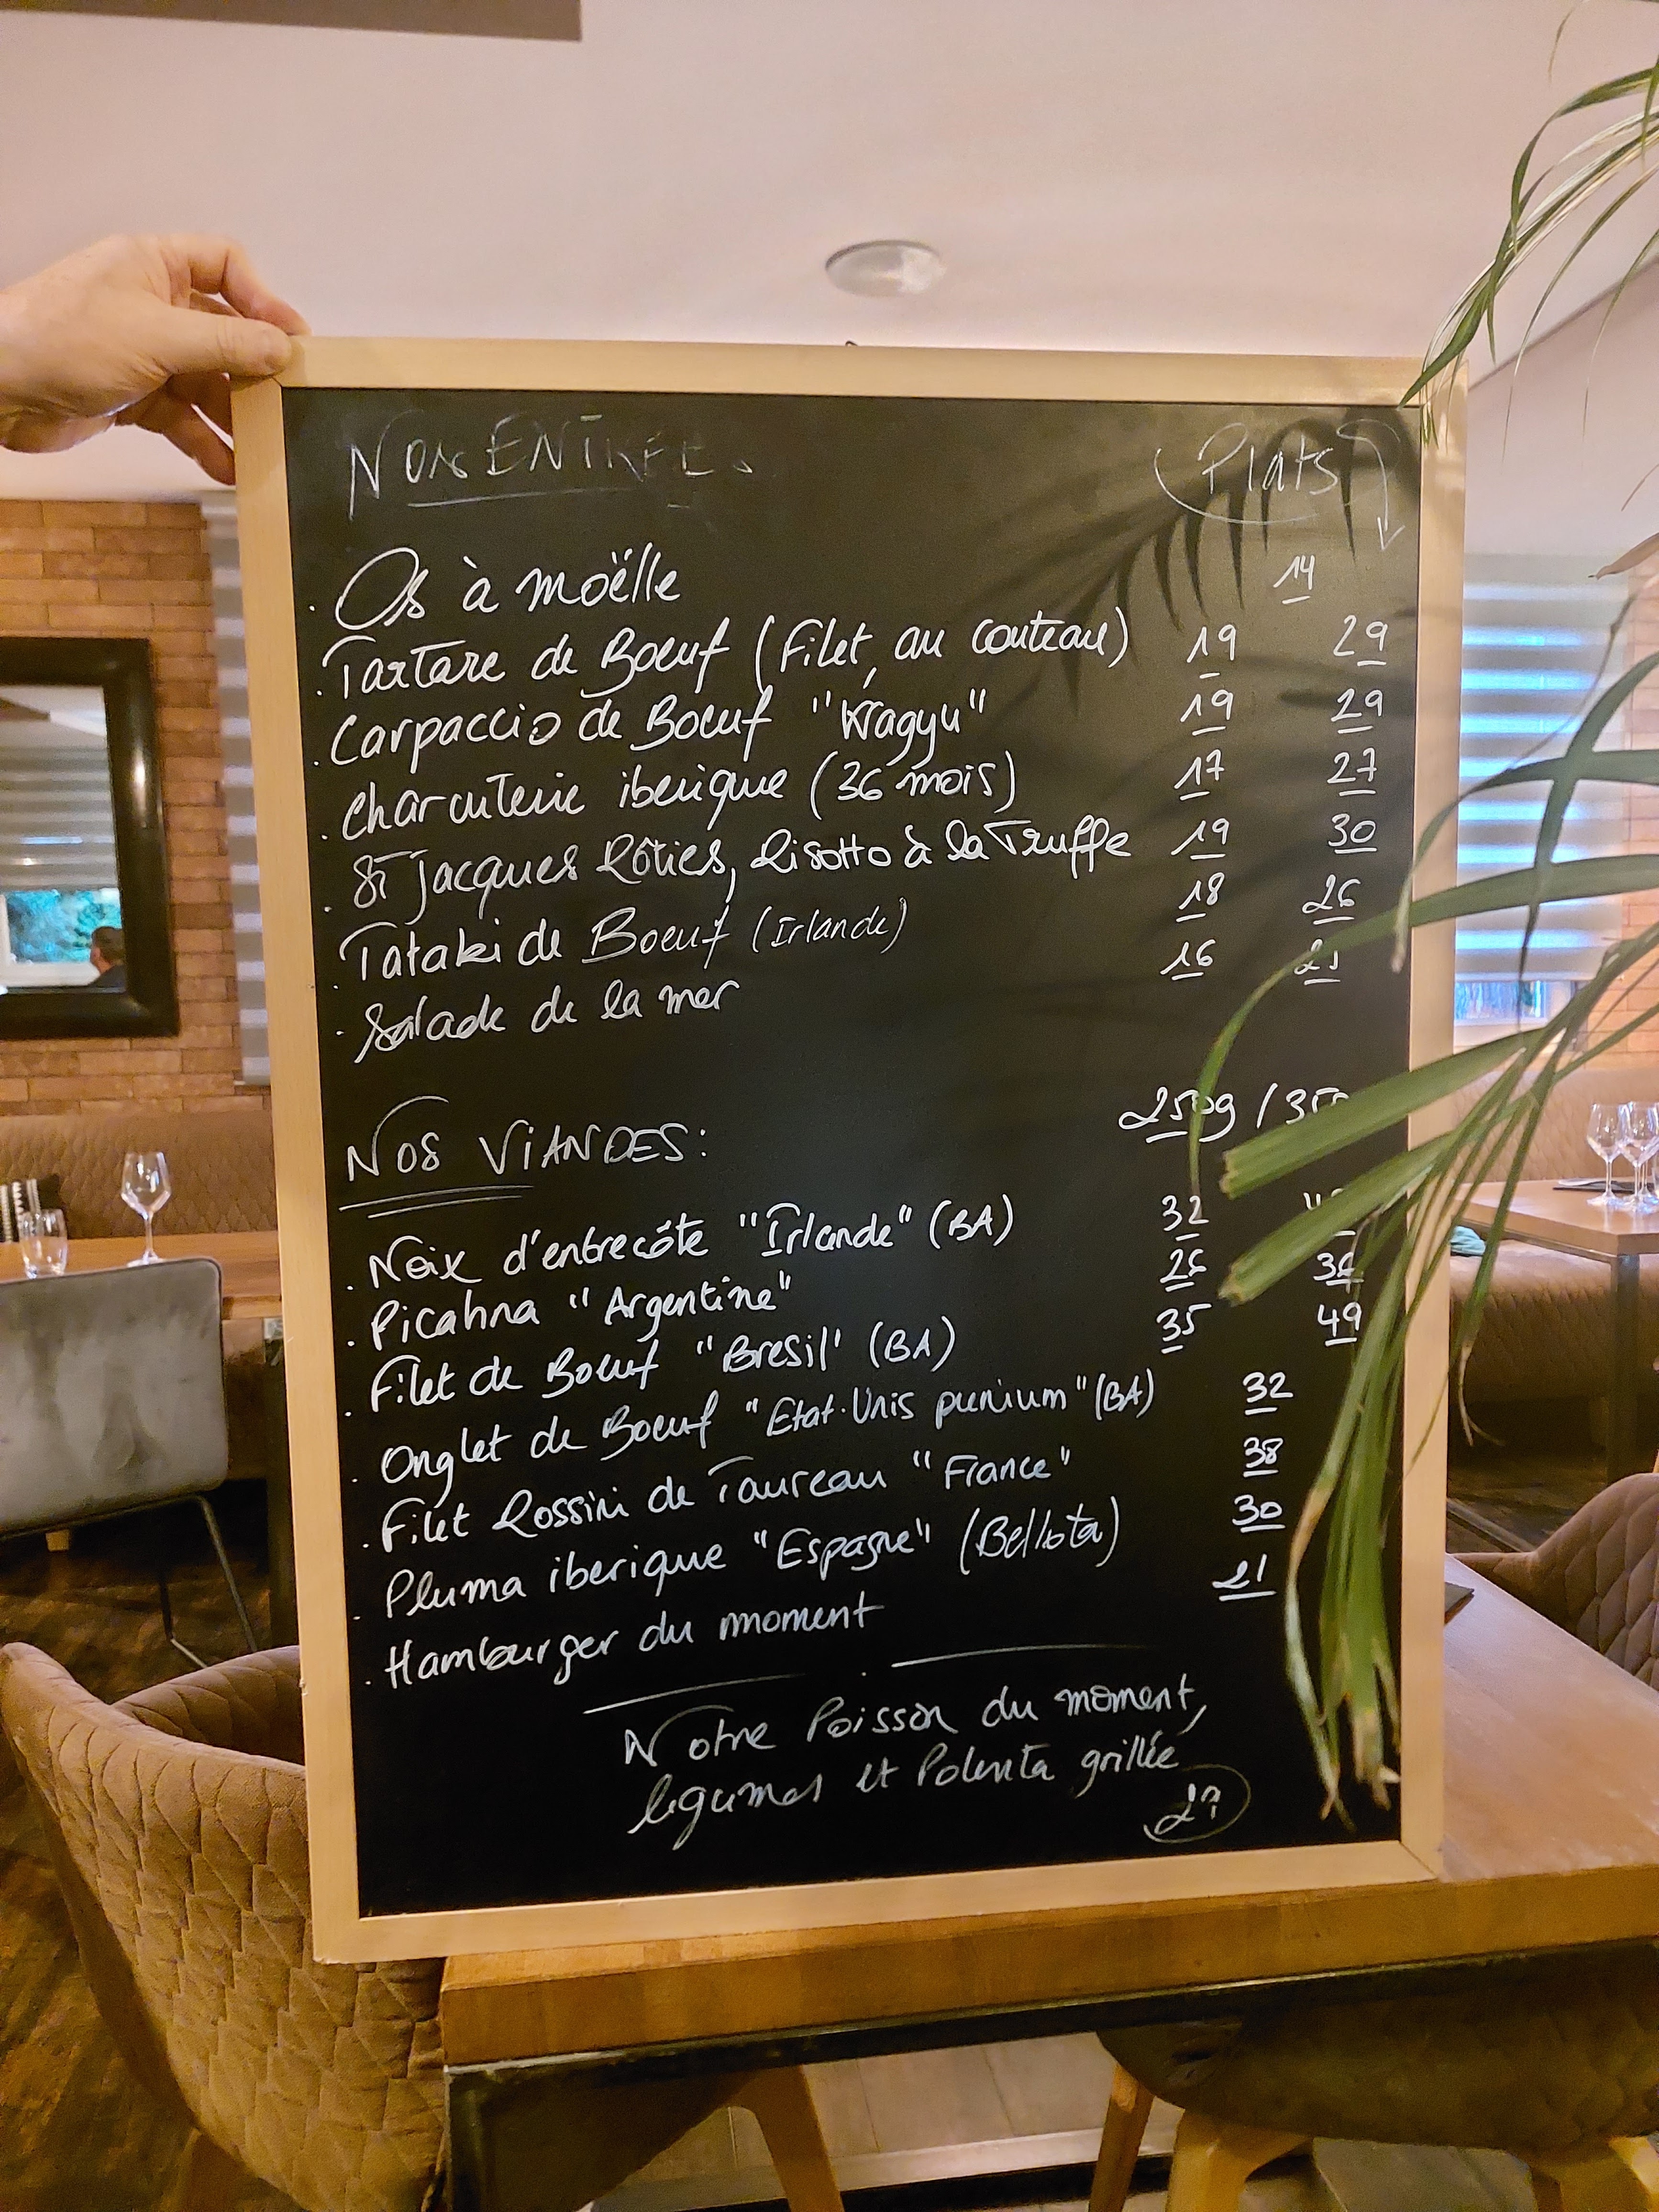 NOS ENTRÉES Plats
. Os à moëlle 14
. Tartare de Boeuf (Filet, au couteau) 19 29
. Carpaccio de Boeuf "Wagyu" 19 29
. Charcuterie iberique (36 mois) 17 27
. St Jacques Rôties, Risotto à la Truffe 19 30
. Tataki de Boeuf (Irlande) 18 26
. Salade de la mer 16
NOS VIANDES: 250g /
. Noix d'entrecôte "Irlande" (BA) 32
. Picahna "Argentine" 26 36
. Filet de Boeuf "Bresil" (BA) 35 49
. Onglet de Boeuf "Etat-Unis" (BA) 32
. Filet Rossini de Taureau "France" 38
. Pluma iberique "Espagne" (Bellota) 30
. Hamburger du moment 21
Notre Poisson du moment,
legumes et Polenta grillée
27